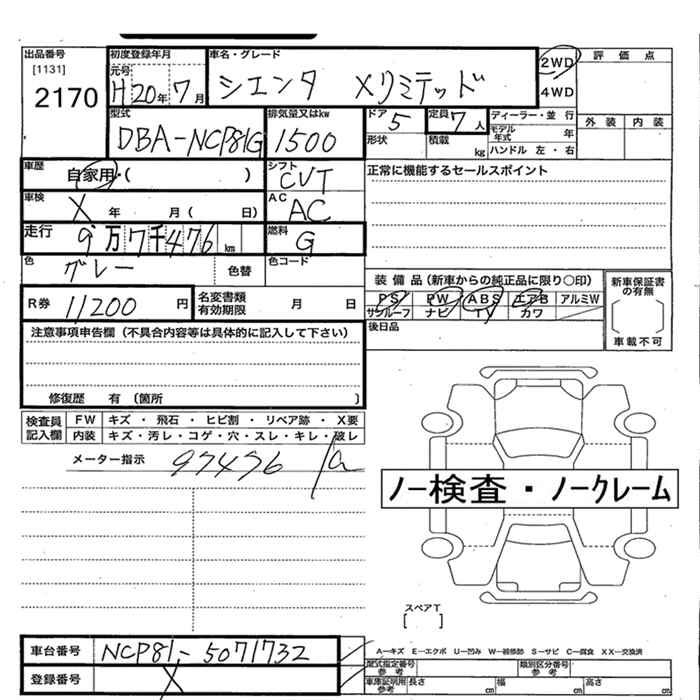 出品番号 初度登録年月 車名・グレード 2WD 評価点
[1131] 元号 シエンタ Xリミテッド 4WD
2170 H20年7月
型式 排気量又はkw ドア 定員 ディーラー・並行 外装 内装
DBA-NCP81G 1500 5 7人 モデル年式 年
形状 積載 kg ハンドル 左・右
車歴 自家用・( ) シフト CVT 正常に機能するセールスポイント
車検 X 年 月( 日) AC AC
走行 9万7千476km 燃料 G
色 グレー 色替 色コード
装備品(新車からの純正品に限り○印) 新車保証書の有無
R券 11200円 名変書類有効期限 月 日 PS PW ABS エアB アルミW
サンルーフ ナビ TV カワ 車載不可
後日品
注意事項申告欄(不具合内容等は具体的に記入して下さい)
修復歴 有 〔箇所 〕
検査員記入欄 FW キズ・飛石・ヒビ割・リペア跡・X要
内装 キズ・汚レ・コゲ・穴・スレ・キレ・破レ
メーター指示 97476
ノー検査・ノークレーム
スペアT
[ ]
車台番号 NCP81-5071732 A-キズ E-エクボ U-凹み W-補修跡 S-サビ C-腐食 XX-交換済
登録番号 X 型式指定番号 参考 類別区分番号 参考
車庫証明用 参考 長さ cm 幅 cm 高さ cm